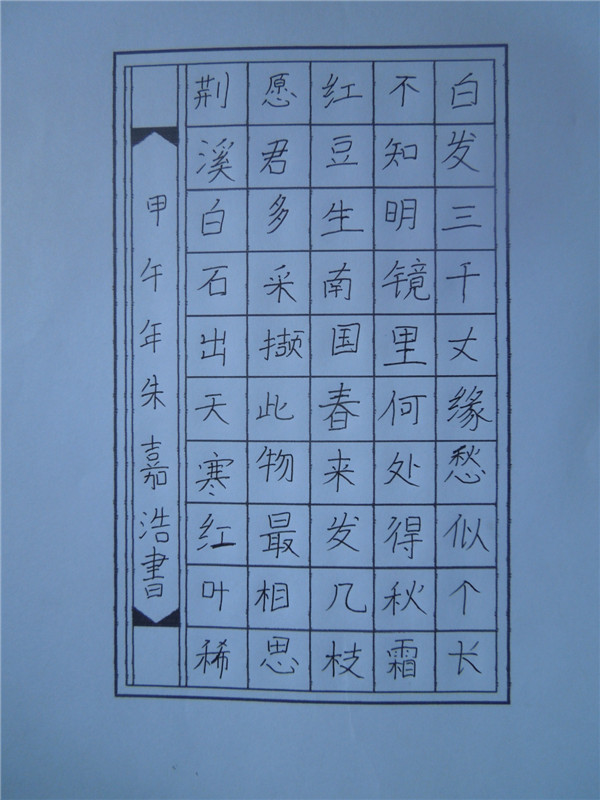 白发三千丈缘愁似个长
不知明镜里何处得秋霜
红豆生南国春来发几枝
愿君多采撷此物最相思
荆溪白石出天寒红叶稀
甲午年朱嘉浩書